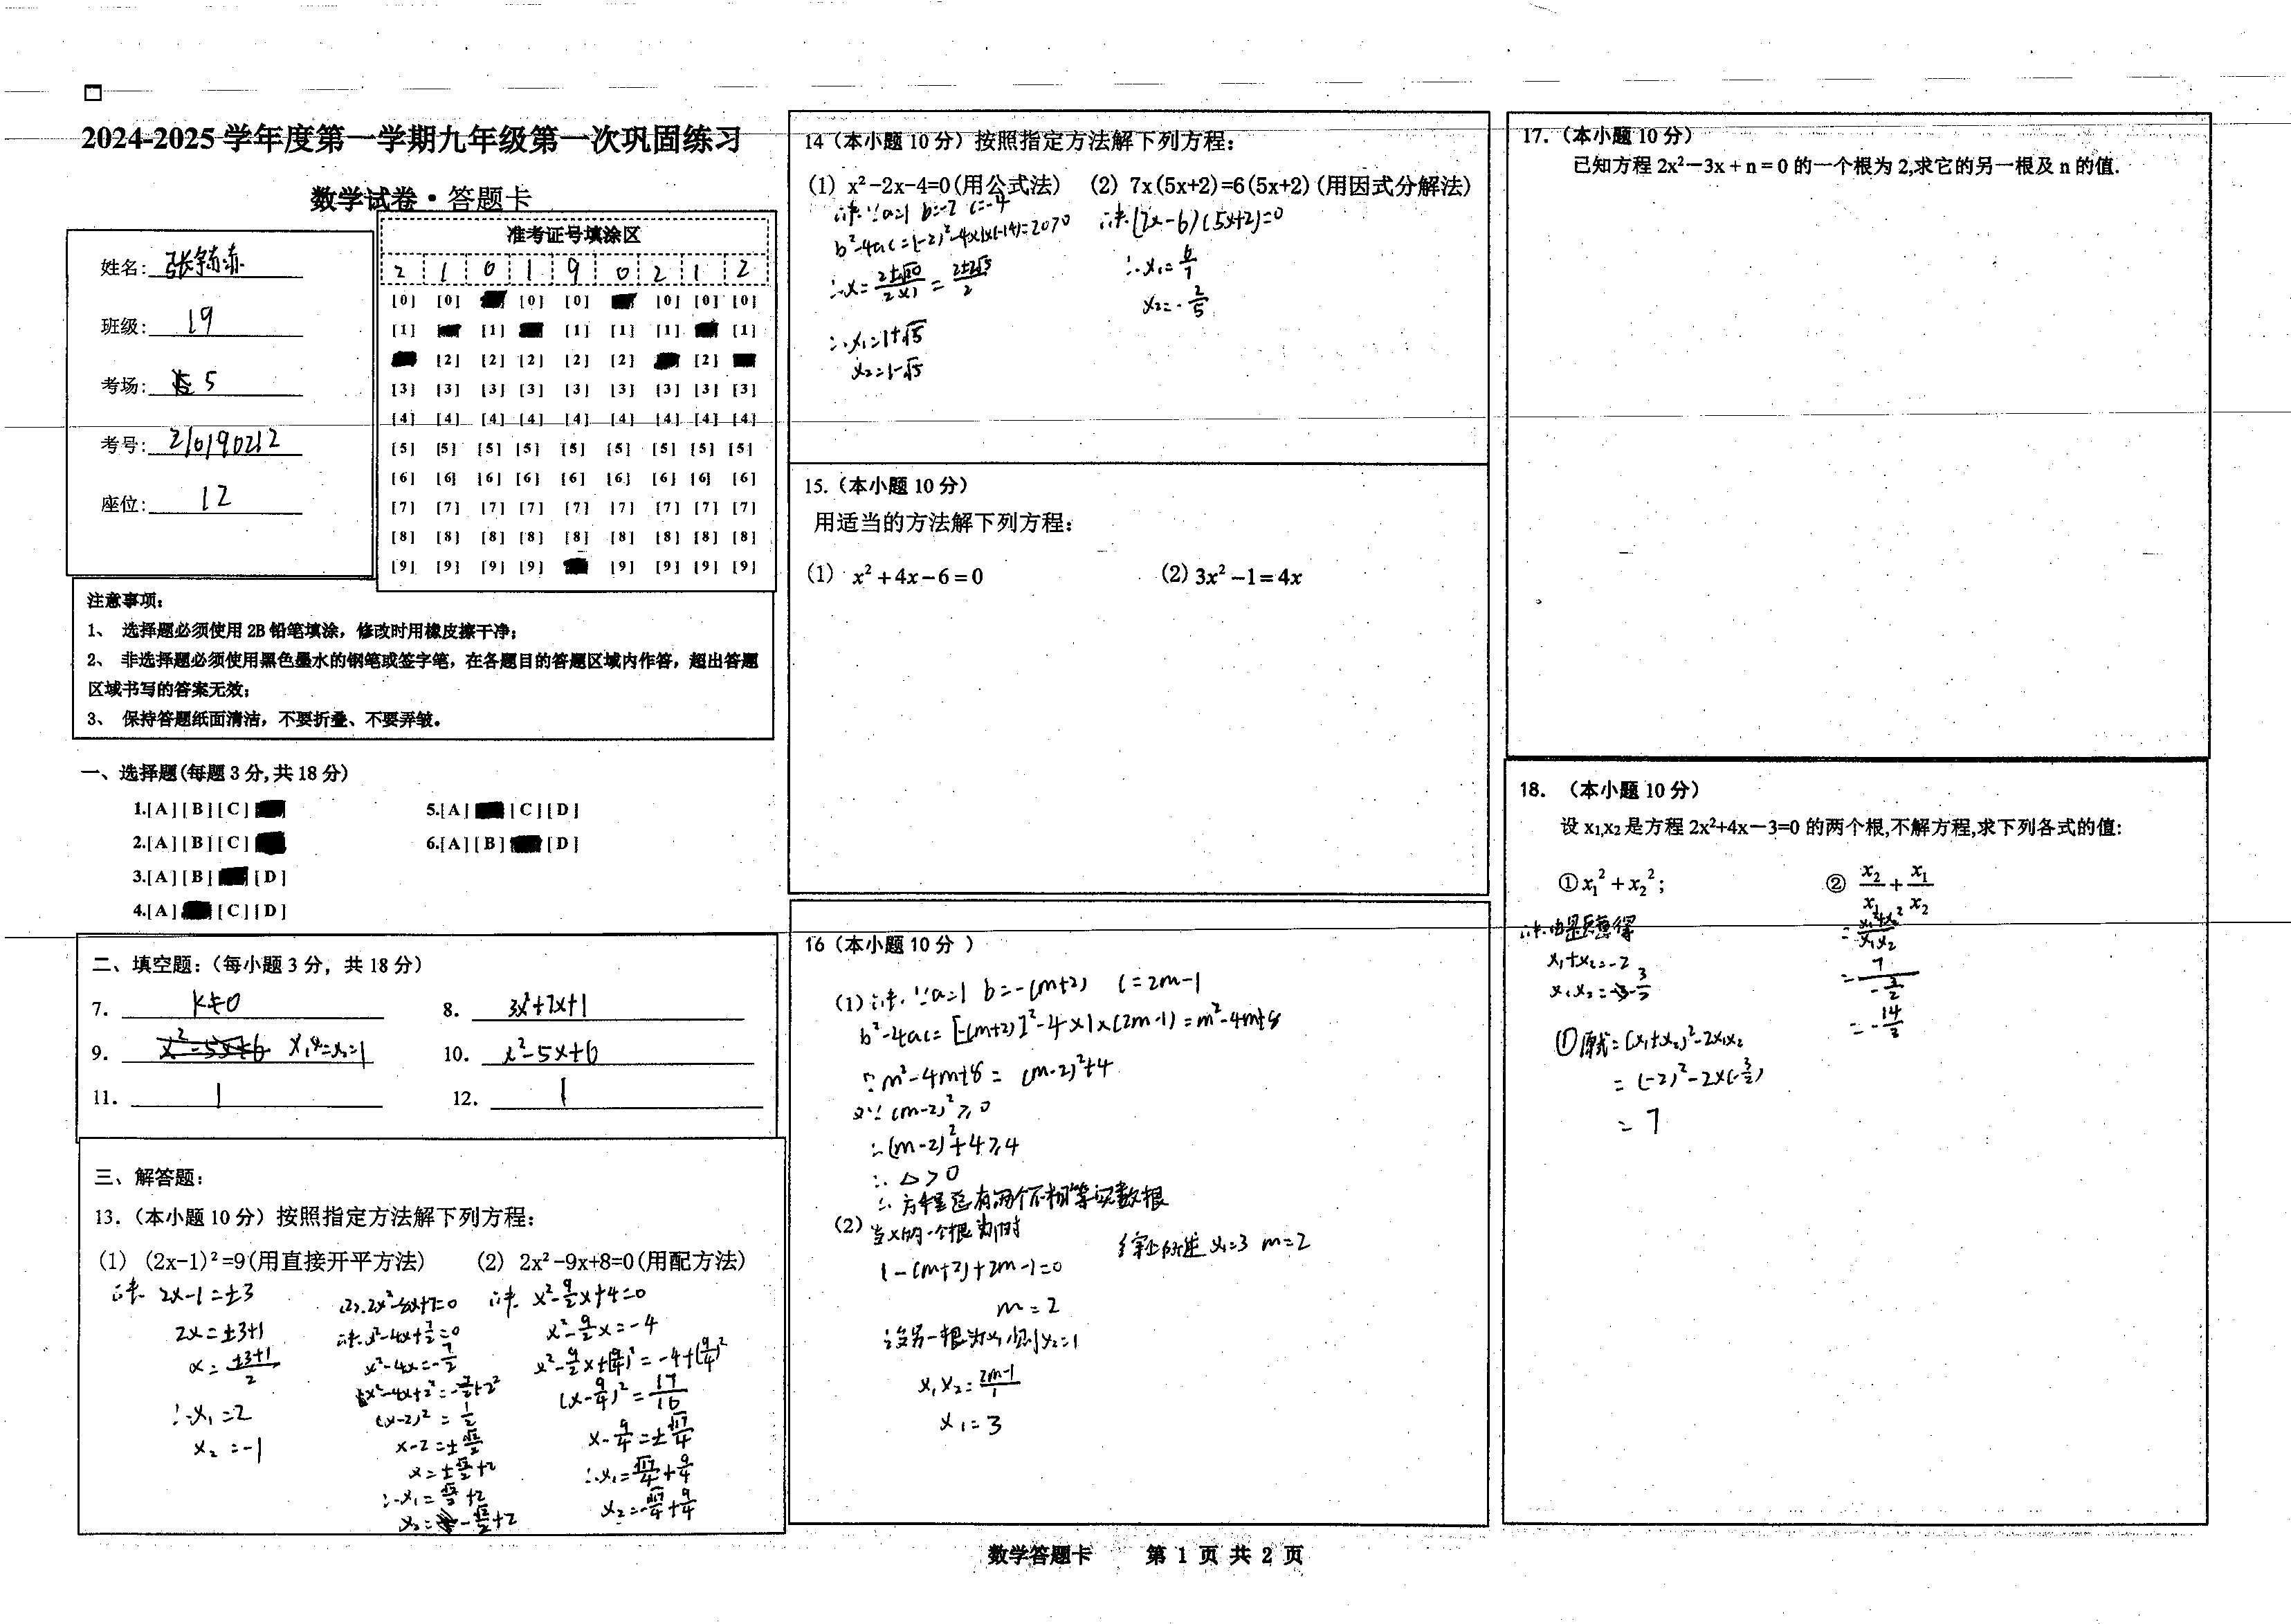 2024-2025 学年度第一学期九年级第一次巩固练习
数学试卷·答题卡
姓名:
班级: 19
考场: 5
考号: 210190212
座位: 12
准考证号填涂区
2 1 0 1 9 0 2 1 2
[0] [0] [0] [0] [0] [0] [0]
[1] [1] [1] [1] [1] [1]
[2] [2] [2] [2] [2] [2]
[3] [3] [3] [3] [3] [3] [3] [3] [3]
[4] [4] [4] [4] [4] [4] [4] [4] [4]
[5] [5] [5] [5] [5] [5] [5] [5] [5]
[6] [6] [6] [6] [6] [6] [6] [6] [6]
[7] [7] [7] [7] [7] [7] [7] [7] [7]
[8] [8] [8] [8] [8] [8] [8] [8] [8]
[9] [9] [9] [9] [9] [9] [9] [9]
注意事项:
1、 选择题必须使用 2B 铅笔填涂，修改时用橡皮擦干净;
2、 非选择题必须使用黑色墨水的钢笔或签字笔，在各题目的答题区域内作答，超出答题
区域书写的答案无效;
3、 保持答题纸面清洁，不要折叠、不要弄皱。
一、选择题(每题 3 分,共 18 分)
1.[A][B][C] 5.[A] [C][D]
2.[A][B][C] 6.[A][B] [D]
3.[A][B] [D]
4.[A] [C][D]
二、填空题:（每小题 3 分，共 18 分）
7. k≠0 8. 3x²+7x+1
9. x₁=x₂=1 10. x²-5x+6
11. 1 12. 1
三、解答题:
13.（本小题 10 分）按照指定方法解下列方程:
(1) (2x-1)²=9(用直接开平方法) (2) 2x²-9x+8=0(用配方法)
解: 2x-1=±3
2x=±3+1
x=±3+1/2
∴x₁=2
x₂=-1
(2).2x²-8x+7=0
解:x²-4x+7/2=0
x²-4x=-7/2
x²-4x+2²=-7/2+2²
(x-2)²=1/2
x-2=±√2/2
x=±√2/2+2
∴x₁=√2/2+2
x₂=-√2/2+2
解: x²-9/2x+4=0
x²-9/2x=-4
x²-9/2x+(9/4)²=-4+(9/4)²
(x-9/4)²=17/16
x-9/4=±√17/4
∴x₁=√17/4+9/4
x₂=-√17/4+9/4
14（本小题 10 分）按照指定方法解下列方程:
(1) x²-2x-4=0(用公式法) (2) 7x(5x+2)=6(5x+2)(用因式分解法)
解:∵a=1 b=-2 c=-4
b²-4ac=(-2)²-4×1×(-4)=20>0
∴x=2±√20/2×1=2±2√5/2
∴x₁=1+√5
x₂=1-√5
解:(7x-6)(5x+2)=0
∴x₁=6/7
x₂=-2/5
15.（本小题 10 分）
用适当的方法解下列方程:
(1) x²+4x-6=0 (2) 3x²-1=4x
16（本小题 10 分 ）
(1)解:∵a=1 b=-(m+2) c=2m-1
b²-4ac=[-(m+2)]²-4×1×(2m-1)=m²-4m+8
∵m²-4m+8=(m-2)²+4
又∵(m-2)²≥0
∴(m-2)²+4≥4
∴△>0
∴方程总有两个不相等实数根
(2)当x的一个根为1时
1-(m+2)+2m-1=0
m=2
设另一根为x₁则x₂=1
x₁x₂=2m-1/1
x₁=3
综上所述 x₁=3 m=2
17.（本小题 10 分）
已知方程 2x²-3x+n=0 的一个根为 2,求它的另一根及 n 的值.
18. （本小题 10 分）
设 x₁,x₂ 是方程 2x²+4x-3=0 的两个根,不解方程,求下列各式的值:
①x₁²+x₂²; ② x₂/x₁+x₁/x₂
解:由题意得
x₁+x₂=-2
x₁x₂=-3/2
①原式=(x₁+x₂)²-2x₁x₂
=(-2)²-2×(-3/2)
=7
=x₁²+x₂²/x₁x₂
=7/-3/2
=-14/3
数学答题卡 第 1 页 共 2 页